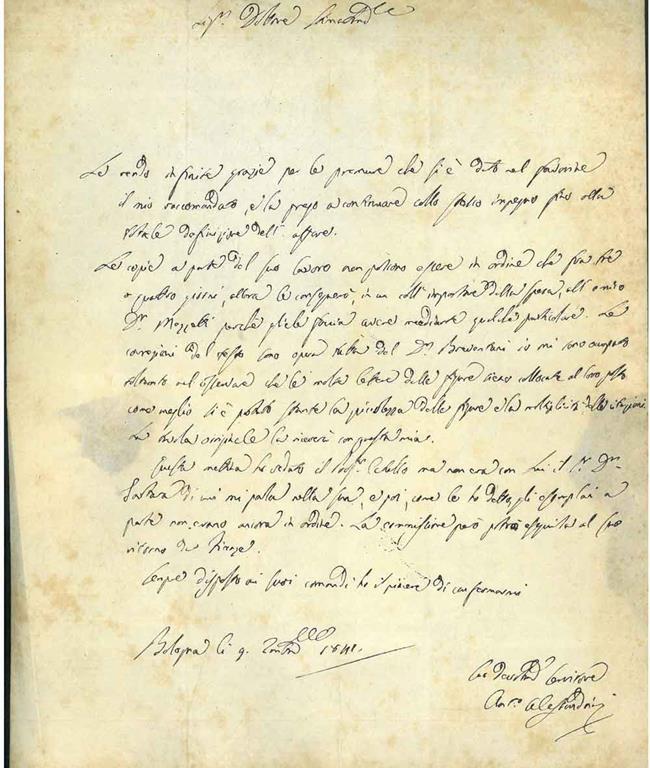 Sig.r Dottore
Le rendo infinite grazie per le premure che si è dato nel favorire
il mio raccomandato, e la prego a continuare collo stesso impegno fino alla
totale definizione dell' affare.
Le copie a parte del suo lavoro non potranno essere in ordine che fra tre
o quattro giorni, allora le consegnerò, in un coll' importare della spesa, all'
D.r perché gliele faccia avere mediante qualche particolare. Le
correzioni del testo sono opera tutta del D.r io mi sono occupato
soltanto nell' osservare che le molte lettere delle figure siano collocate al loro posto
come meglio si è potuto stante la piccolezza delle figure e la molteplicità delle
La originale la riceverà con questa mia.
Questa mattina ho veduto il ma non era con Lui il S.r D.r
di cui mi parla nella sua, e poi, come le ho detto, gli esemplari a
parte non erano ancora in ordine. La commissione però potrà eseguirla al suo
ritorno da Firenze.
Sempre disposto ai suoi comandi ho il piacere di confermarmi
Bologna li 9. 1841.
Suo Servitore
Ant.o Alessandrini